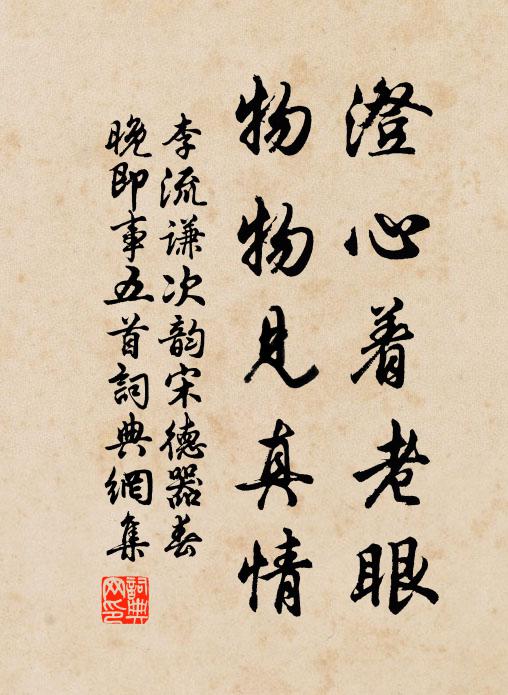 澄心着老眼
物物見真情
李流谦次韵宋德器春
晚即事五首詞典網集
詞典网印